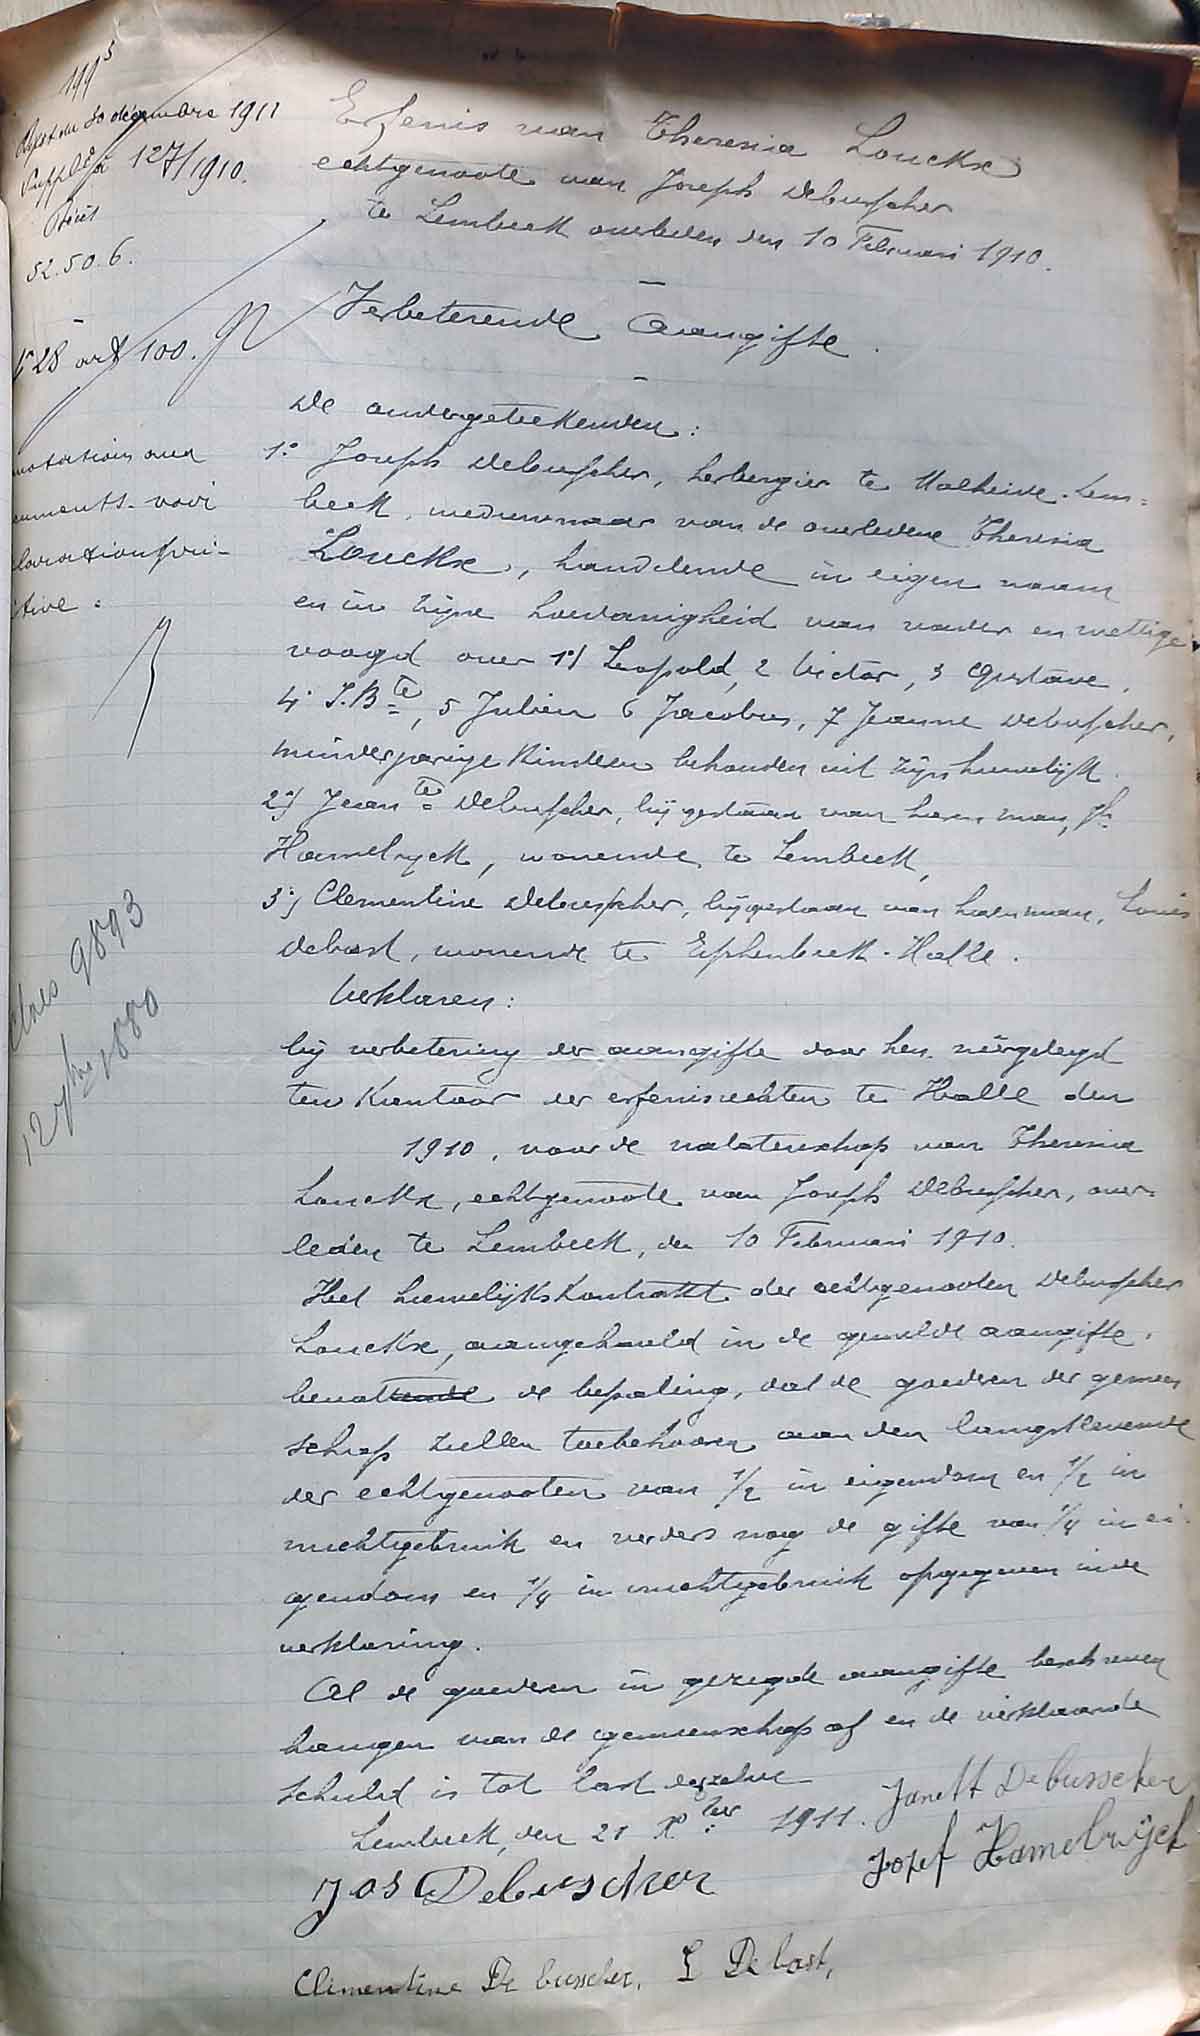 1993
30 décembre 1911
127/1910.
52.50.6.
28 art 100.
Erfenis van Theresia Louckx
echtgenoote van Joseph Debusscher
te Lembeek overleden den 10 Februari 1910.
Verbeterende Aangifte.
De ondergeteekenden:
1° Joseph Debusscher, herbergier te Malheide-Lem=
beek, weduwnaar van de overledene Theresia
Louckx, handelende in eigen naam
en in zijne hoedanigheid van vader en wettige
voogd over 1°/ Leopold, 2 Victor, 3 Gustave,
4 J.Bte, 5 Julien 6 Jacobus, 7 Jeanne Debusscher,
minderjarige kinderen behouden uit zijn huwelijk.
2°/ Jeantte Debusscher, bijgestaan van haren man, Jh
Hamelryck, wonende te Lembeek,
3°/ Clementine Debusscher, bijgestaan van haren man, Louis
Debast, wonende te Essenbeek-Halle.
Verklaren:
bij verbetering der aangifte door hen neêrgelegd
ten Kantoor der erfenisrechten te Halle den
1910, voor de nalatenschap van Theresia
Louckx, echtgenoote van Joseph Debusscher, over-
leden te Lembeek, den 10 Februari 1910.
Het huwelijkskontrakt der echtgenooten Debusscher
Louckx, aangehaald in de gemelde aangifte,
bevattende de bepaling, dat de goederen der gemeen
schap zullen toebehooren aan den langstlevende
der echtgenooten van 1/2 in eigendom en 1/2 in
vruchtgebruik en verders nog de gifte van 1/4 in ei-
gendom en 1/4 in vruchtgebruik opgegeven in de
verklaring.
Al de goederen in gezegde aangifte beschreven
hangen van de gemeenschap af en de verklaarde
schuld is tot last derzelve
Lembeek, den 21 Xber 1911.
Janett Debusscher
Jos Debusscher
Jozef Hamelrijck
Clementine De busscher, L De bast,
notations aux
voir
9893
1880